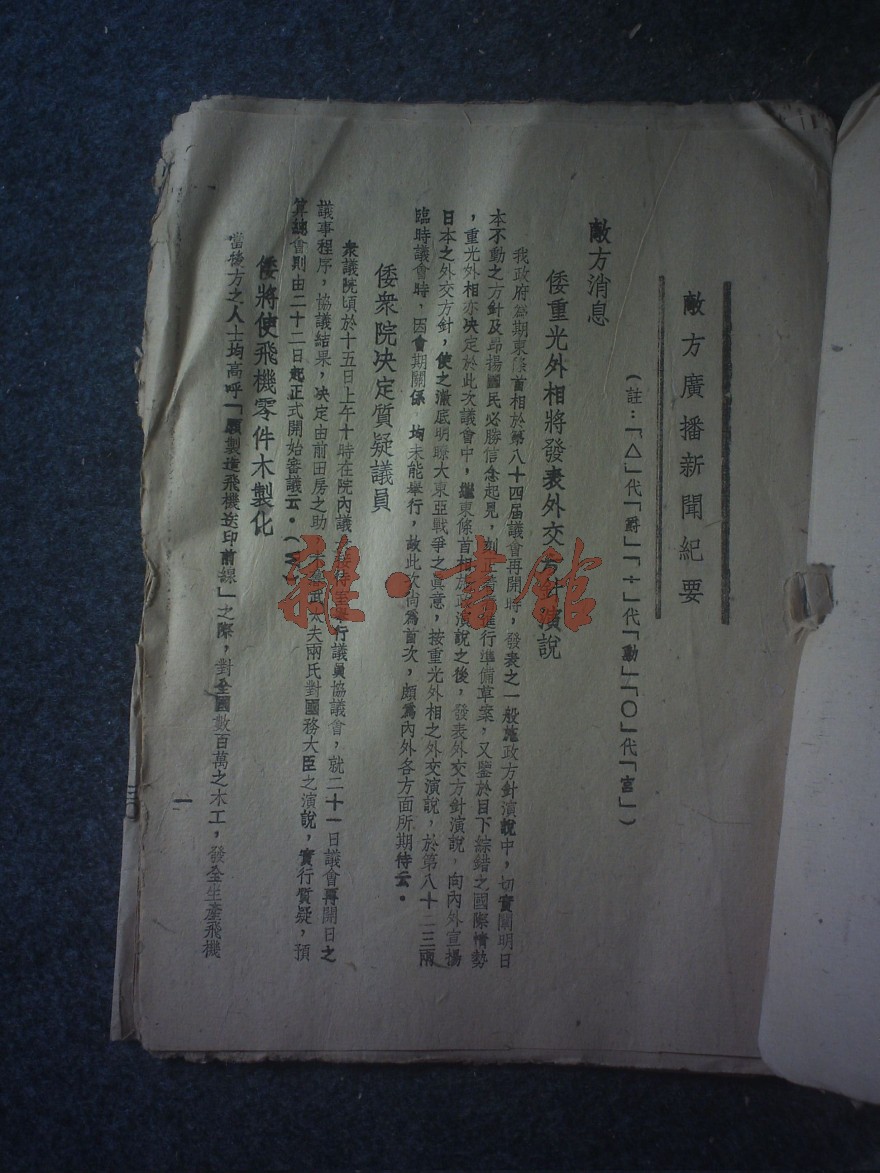 敵方廣播新聞紀要
(註：「△」代「爵」「十」代「勳」「○」代「宮」)
敵方消息
倭重光外相將發表外交方針演說
我政府為期東條首相於第八十四屆議會再開時，發表之一般施政方針演說中，切實闡明日
本不動之方針及昂揚國民必勝信念起見，刻正着手進行準備草案，又鑒於目下綜錯之國際情勢
，重光外相亦決定於此次議會中，繼東條首相施政演說之後，發表外交方針演說，向內外宣揚
日本之外交方針，使之澈底明瞭大東亞戰爭之眞意，按重光外相之外交演說，於第八十二三兩
臨時議會時，因會期關係 均未能舉行，故此次尙為首次，頗為內外各方面所期待云。
倭衆院決定質疑議員
衆議院頃於十五日上午十時在院內議長接待室舉行議員協議會，就二十一日議會再開日之
議事程序，協議結果，決定由前田房之助 武太夫兩氏對國務大臣之演說，實行質疑，預
算總會則由二十二日起正式開始審議云。
倭將使飛機零件木製化
當後方之人士均高呼「願製造飛機送印前線」之際，對全國數百萬之木工，發全生產飛機
一
雜·書館